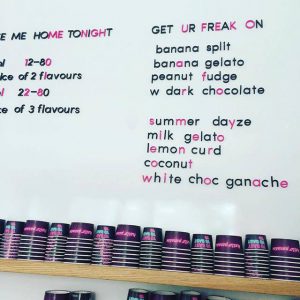 E ME HOME TONIGHT
12-80
ice of 2 flavours
22-80
ice of 3 flavours
GET UR FREAK ON
banana split
banana gelato
peanut fudge
w dark chocolate
summer dayze
milk gelato
lemon curd
coconut
white choc ganache